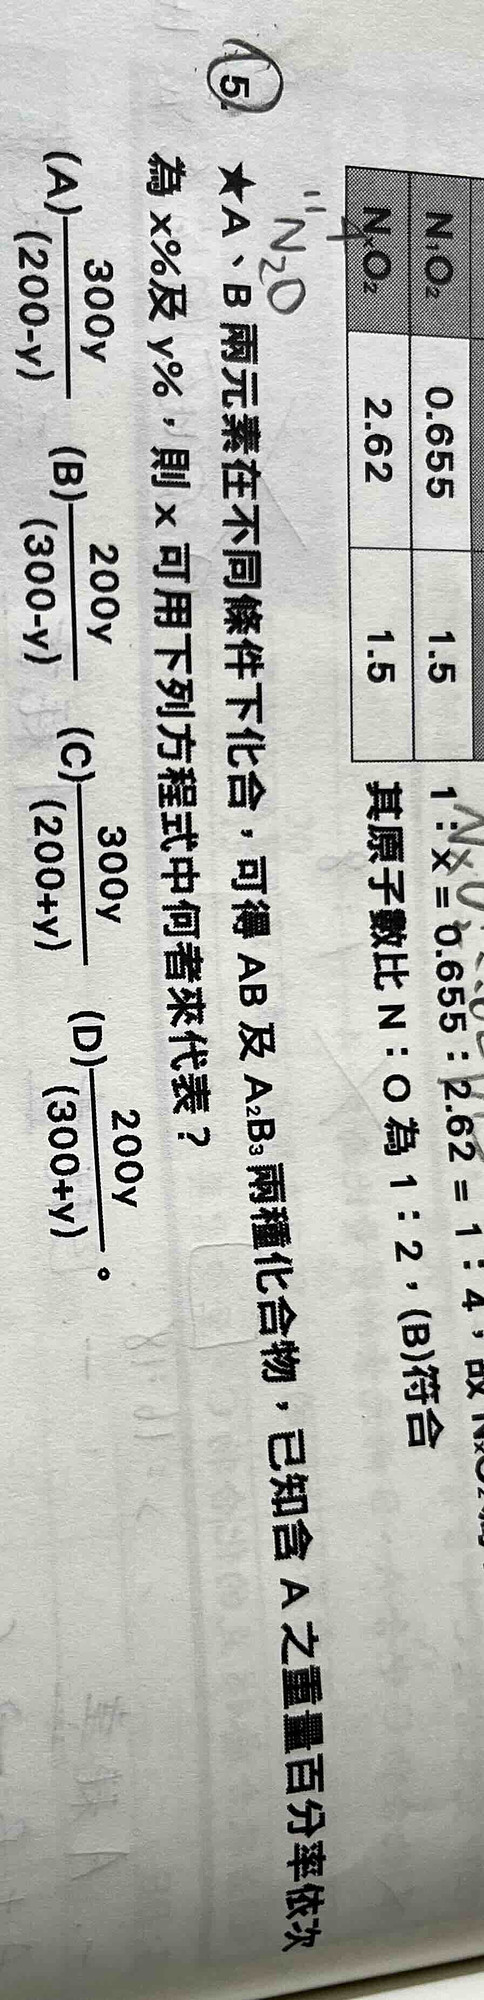 N₁O₂ 0.655 1.5
1：x = 0.655：2.62 = 1：4，故
NₓO₂ 2.62 1.5
其原子數比 N：O 為 1：2，(B)符合
4
"
N₂O
5. ★A、B 兩元素在不同條件下化合，可得 AB 及 A₂B₃ 兩種化合物，已知含 A 之重量百分率依次
為 x%及 y%，則 x 可用下列方程式中何者來代表？
(A) 300y/(200-y) (B) 200y/(300-y) (C) 300y/(200+y) (D) 200y/(300+y) 。